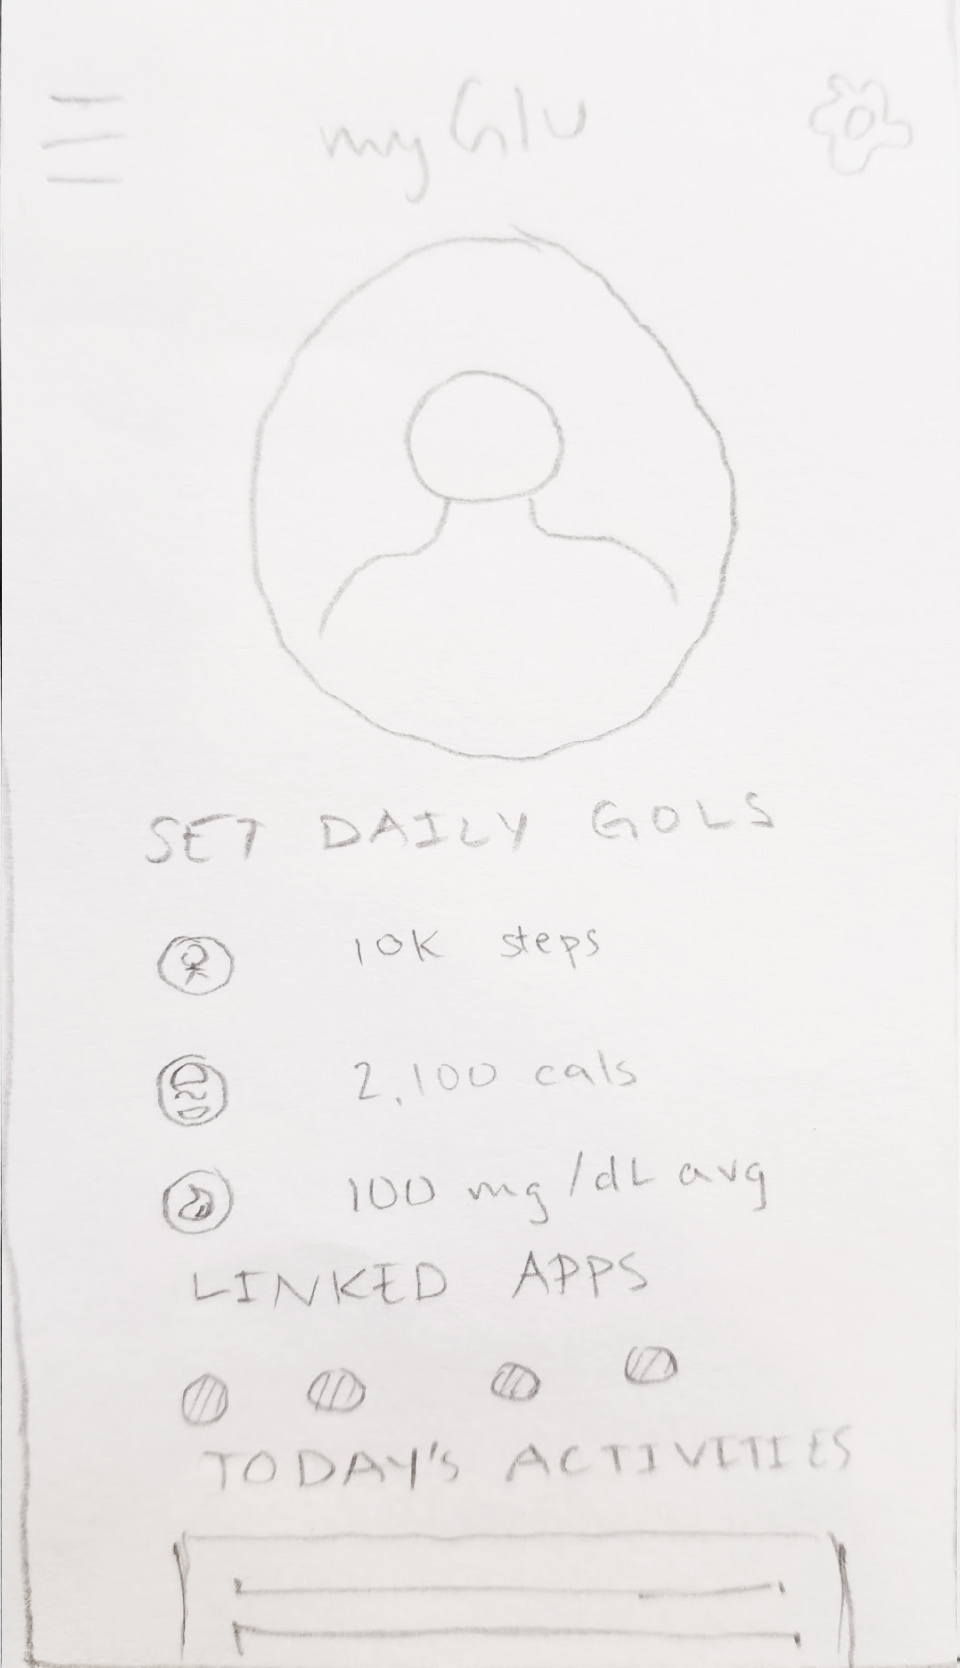 myGlu
SET DAILY GOLS
10K steps
2,100 cals
100 mg/dL avg
LINKED APPS
TODAY'S ACTIVITIES